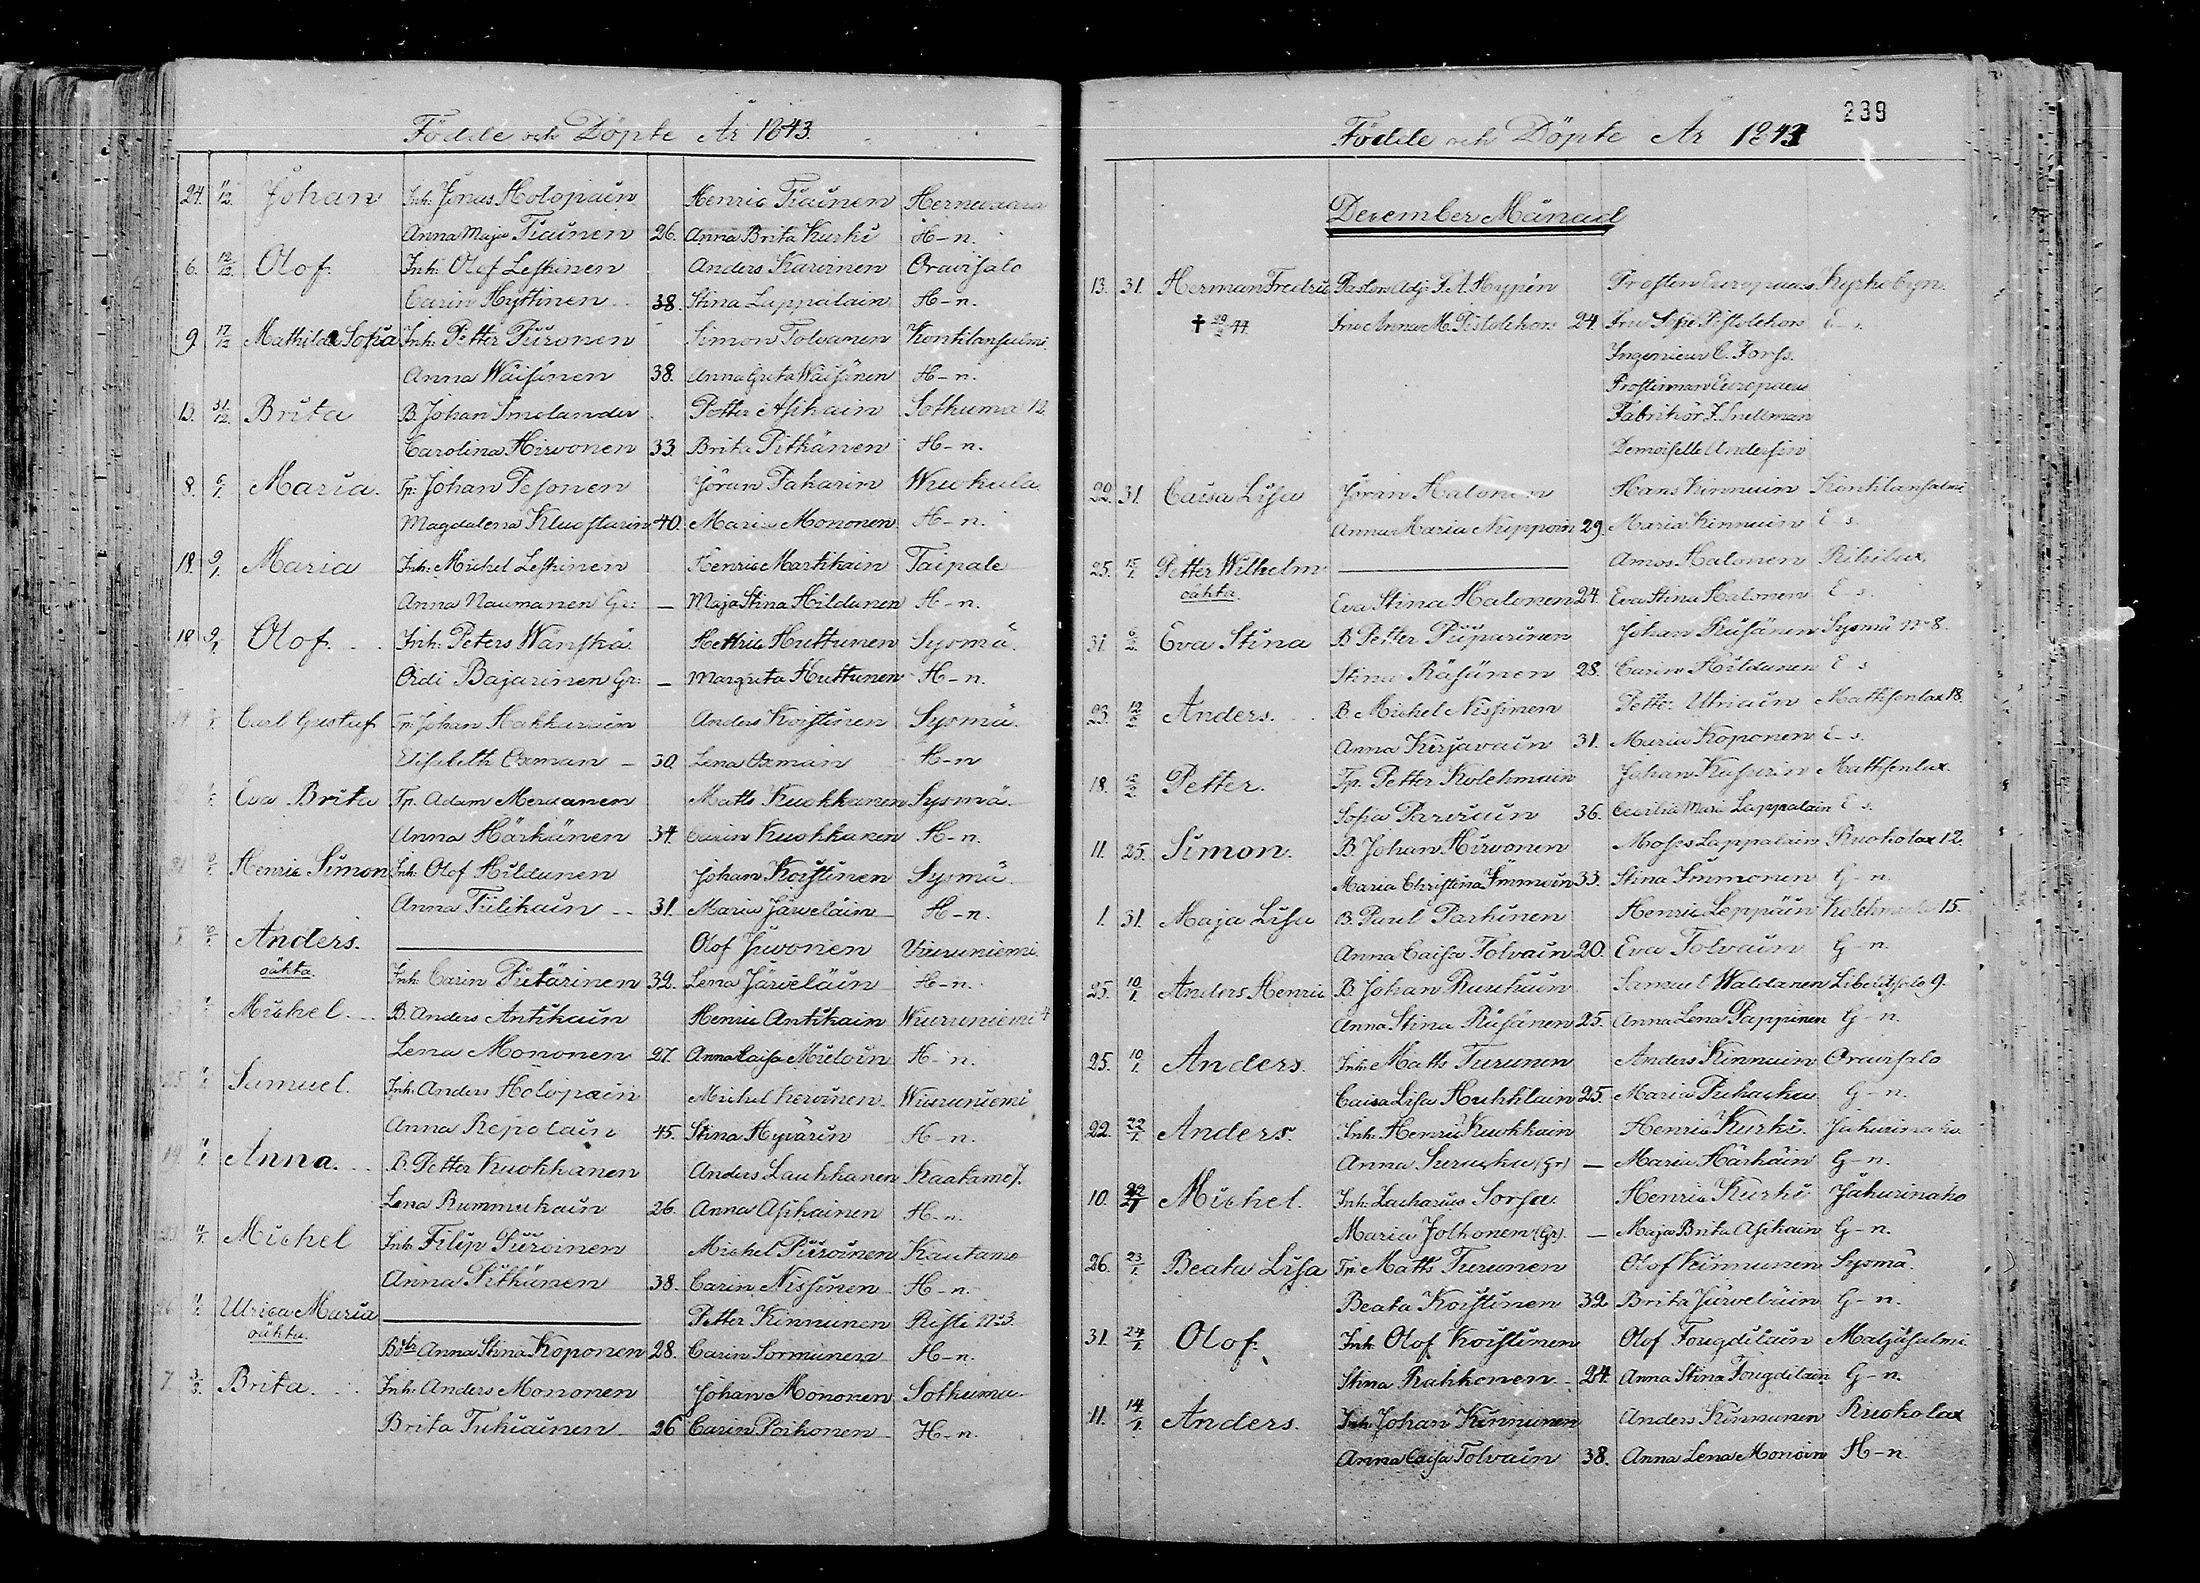 Födde och Döpte År 1843.
24. 11/12. Johan Inh: Jonas Holopain Henric Tiainen Hernevaara
Anna Maja Tiainen 26. Anna Brita Kurki H-n.
6. 12/12 Olof. Inh: Olof Leskinen Anders Karvinen Oravisalo
Carin Hyttinen 38. Stina Lappalain H-n.
9 17/12 Mathilda Sofia Inh: Petter Piironen Simon Tolvanen Kontilansalmi.
Anna Wäisänen 38. Anna Greta Wäisänen H-n.
13. 31/12. Brita B. Johan Smolander Petter Asikain Sotkuma 12.
Carolina Hirvonen 33. Brita Pitkänen H-n.
8. 6/1. Maria. Tp: Johan Pesonen Jöran Pakarin Wuokala
Magdalena Kluosturin 40. Maria Mononen H-n.
18. 9/1. Maria Inh: Michel Leskinen Henric Martikain Taipale
Anna Naumanen Gr: — Maja Stina Hildunen H-n.
18 9/1 Olof. Inh: Peters Wänskä Hettric Huttunen Sysmä.
Oidi Bajarinen Gr: — Margreta Huttunen H-n.
Carl Gustaf Tp: Johan Hakkarain Anders Koistinen Sysmä.
Elisabeth Oxman 30. Lena Oxman H-n
Eva Brita Tp. Adam Meriänen Matts Kuokkanen Sysmä.
Anna Härkänen 34. Carin Kuokkanen H-n.
Henric Simon Inh: Olof Hildunen Johan Koistinen Sysmä
Anna Tiilikain 31. Maria Järveläin H-n.
Anders. Olof Juvonen Wiuruniemi.
oäkta. Inh: Carin Pietärinen 32. Lena Järveläin H-n.
Michel B. Anders Antikain Henric Antikain Wiuruniemi 4
Lena Mononen 27. Anna Caisa Muloin H-n.
Samuel. Inh: Anders Holopain Michel Kervinen Wiuruniemi
Anna Repolain 45. Stina Hyvärin H-n.
Anna. B. Petter Kuokkanen Anders Laukkanen Kaatamo 7.
Lena Rummukain 26. Anna Asikainen H-n.
Michel Inh: Filip Piiroinen Michel Piiroinen Kaatamo
Anna Pitkänen 38. Carin Nissinen H-n.
Ulrica Maria Petter Kinnunen Risti No 3.
oäkta. Anna Stina Koponen 28. Carin Sormunen H-n.
7. 3/3. Brita. Inh: Anders Mononen Johan Mononen Sotkuma
Brita Tukiainen 26 Carin Poikonen H-n.
239
Födde och Döpte År 1843
December Månad
13. 31. Herman Fredric Pastors Adj: F. A. Hypén Prosten Europaeus Kyrkobyn.
✝ 29/3 44. Fru Anna M. Pistolekors 24. Fru Sofie Pistolekors E-s.
Ingenieur C. Forss.
Prostinnan Europaeus
Fabrikör F. Snellman
Demoiselle Andersin
22. 31. Caisa Lisa Jöran Halonen Hans Kinnuin Kontilansalmi
Anna Maria Nuppoin 29. Maria Kinnuin E-s.
25. 15/1. Petter Wilhelm Amos Halonen Rikilax
oäkta. Eva Stina Halonen 24. Eva Stina Halonen E-s.
31. 6/2. Eva Stina B Petter Piiparinen Johan Räsänen Sysmä No 8.
Stina Räsänen 28. Carin Hildunen E-s
23. 12/2. Anders. B. Michel Nissinen Petter Utriain Mattisenlax 18.
Anna Kirjavain 31. Maria Koponen E-s.
18. 12/2. Petter. Tp. Petter Kolehmain Johan Kasurin Mattisenlax.
Sofia Parviain 36. Cecilia Maria Lappalain E-s.
11. 25. Simon. B. Johan Hirvonen Moses Lappalain Ruokolax 12.
Maria Christina Immoin 33. Stina Immonen G-n.
1. 31. Maja Lisa B. Paul Parkinen Henric Leppäin 15.
Anna Caisa Tolvain 20. Eva Tolvain G-n.
25. 10/1. Anders Henric B. Johan Ruuskain Samuel Waldanen Libelitsalo 9.
Anna Stina Räsänen 25. Anna Lena Pappinen G-n.
25. 10/1. Anders. Inh: Matts Turunen Anders Kinnuin Oravisalo
Caisa Lisa Hukklain 25. Maria G-n.
22. 22/1. Anders. Inh: Henric Kuokkain Henric Kurki. Jakurinaho.
Anna (Gr) — Maria Härkäin G-n.
10. 22/1 Michel. Inh: Zacharias Sorsa. Henric Kurki Jakurinaho
Maria Jolkonen (Gr). — Maja Brita Asikain G-n.
26. 23/1. Beata Lisa Tp: Matts Turunen Olof Kinnunen Sysmä.
Beata Koistinen 32 Brita Järveläin G-n.
31. 24/1. Olof. Inh: Olof Koistinen Olof Fougdilain Maljasalmi
Stina Rahkonen 24. Anna Stina Fougdilain G-n.
11. 14/1. Anders. Inh: Johan Kinnunen Anders Kinnunen Ruokolax
Anna Caisa Tolvain 38. Anna Lena Monoin H-n.